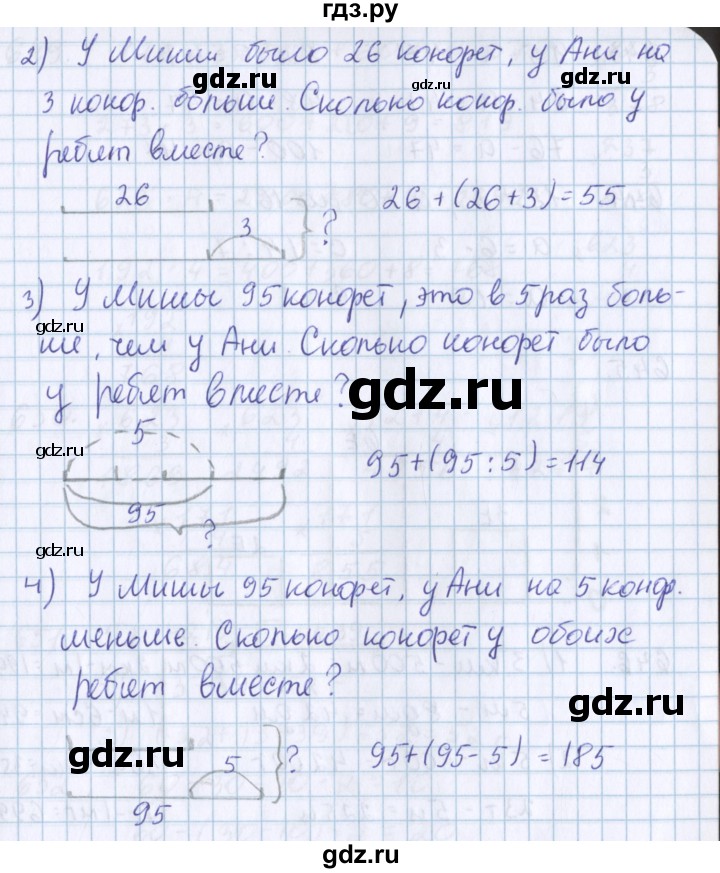 гдз.ру
2) У Миши было 26 конфет, у Ани на
3 конф. больше. Сколько конф. было у
ребят вместе?
26
3
?
26 + (26+3) = 55
3) У Миши 95 конфет, это в 5 раз боль-
ше, чем у Ани. Сколько конфет было
у ребят вместе?
5
95
?
95+(95:5) = 114
4) У Миши 95 конфет, у Ани на 5 конф.
меньше. Сколько конфет у обоих
ребят вместе?
5
?
95
95+(95-5) = 185
gdz.ru
gdz.ru
gdz.ru
gdz.ru
gdz.ru
gdz.ru
gdz.ru
gdz.ru
gdz.ru
gdz.ru
gdz.ru
gdz.ru
gdz.ru
gdz.ru